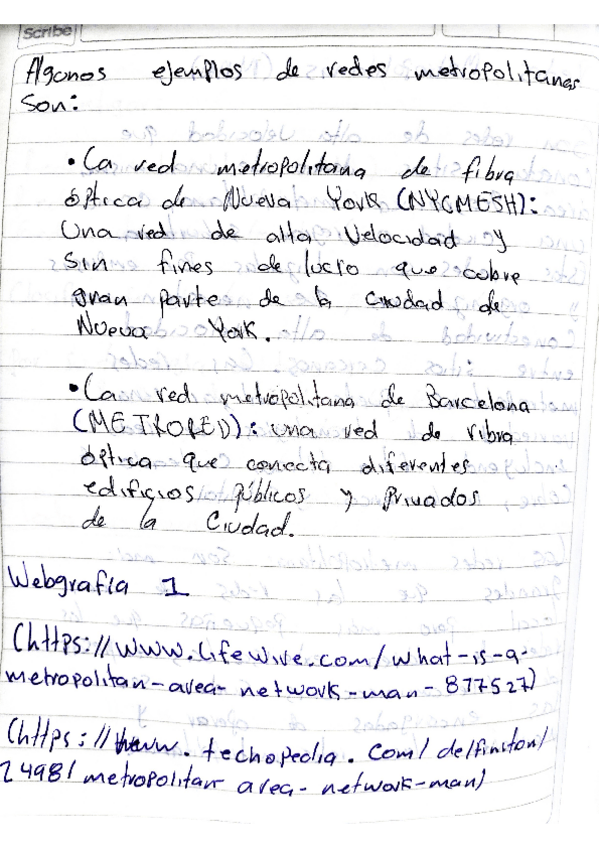 Scribe
Algunos ejemplos de redes metropolitanas
Son:
• La red metropolitana de fibra
óptica de Nueva York (NYCMESH):
Una red de alta Velocidad y
Sin fines de lucro que cubre
gran parte de la ciudad de
Nueva York.
• La red metropolitana de Barcelona
(METRORED): una red de vibra
óptica que conecta diferentes
edificios públicos y Privados
de la Ciudad.
Webgrafía 1
(https://www.lifewire.com/what-is-a-
metropolitan-area-network-man-877527)
(https://www.techopedia.com/definiton/
24981metropolitan area-network-man)